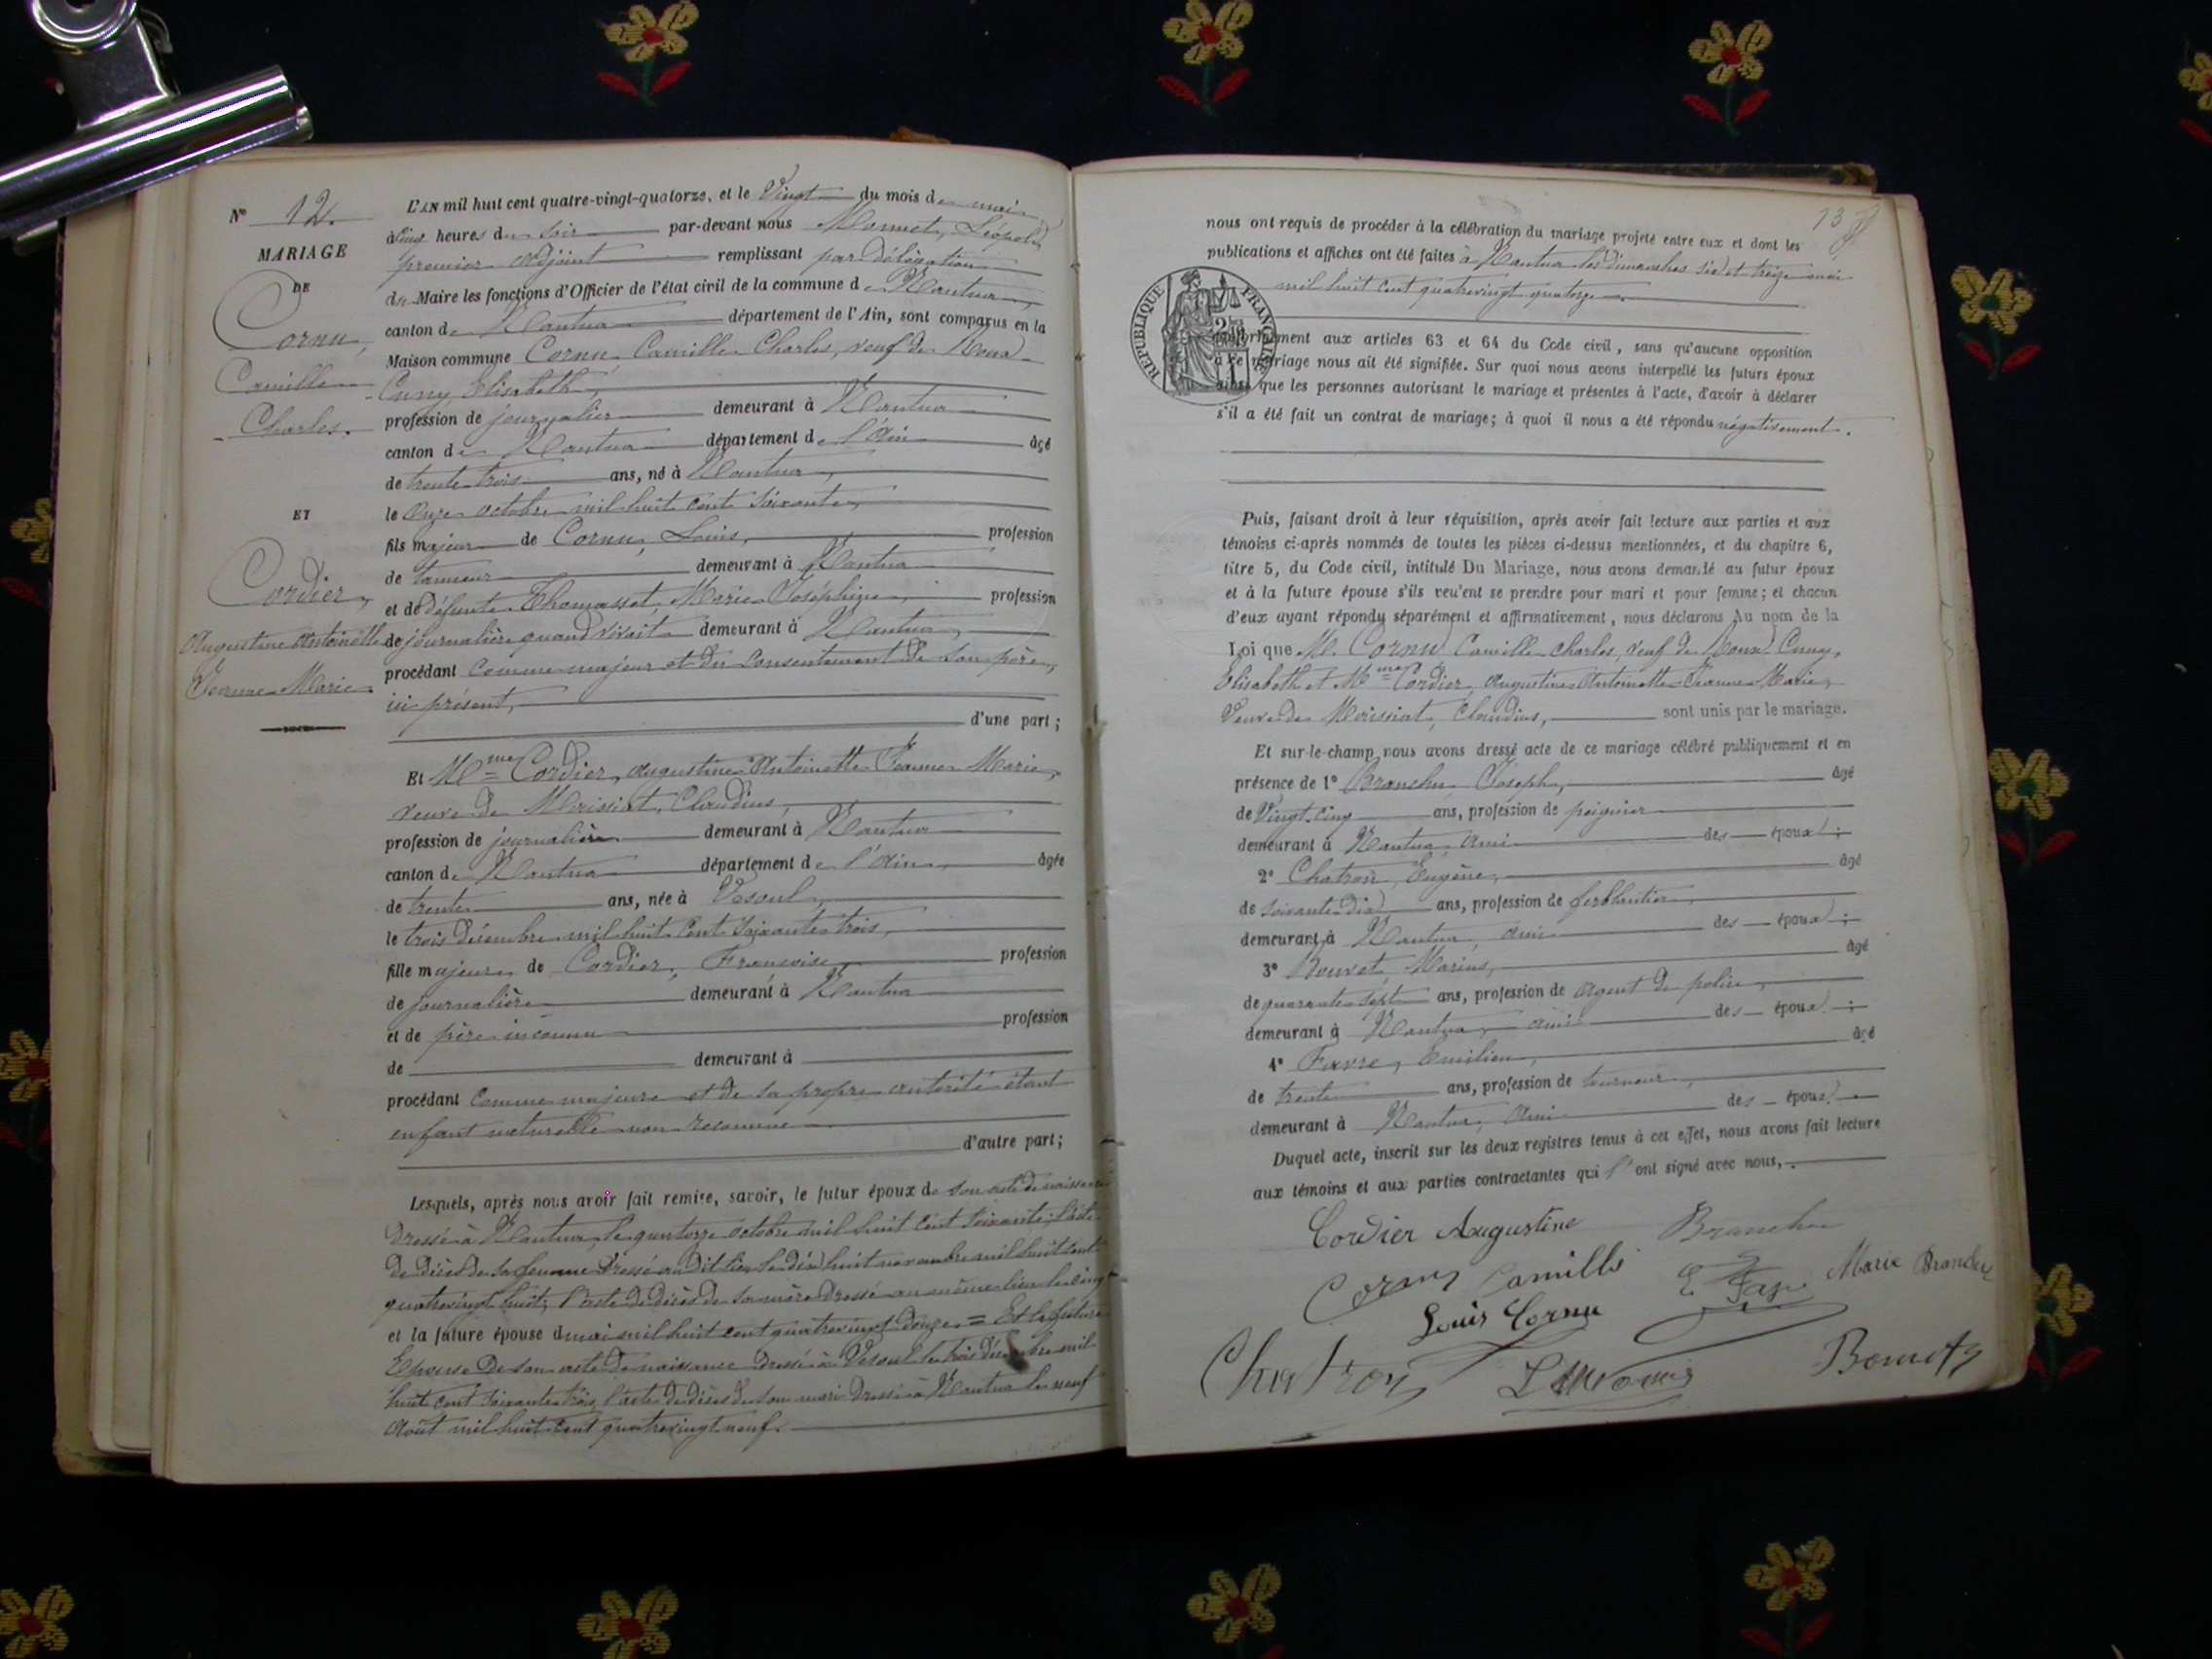 N° 12.
MARIAGE
DE
Cornu,
Camille
Charles.
ET
Cordier,
Augustine Antoinette
Jeanne Marie
L'AN mil huit cent quatre-vingt-quatorze, et le Vingt du mois de mai
à cinq heures du soir par-devant nous Monnet, Léopold
premier adjoint remplissant par délégation
du Maire les fonctions d'Officier de l'état civil de la commune de Nantua,
canton de Nantua département de l'Ain, sont comparus en la
Maison commune Cornu, Camille Charles, veuf de
Cuny Elisabeth,
profession de journalier demeurant à Nantua
canton de Nantua département de l'Ain âgé
de trente trois ans, né à Nantua,
le onze octobre mil huit cent soixante,
fils majeur de Cornu, Louis, profession
de tanneur demeurant à Nantua
et de défunte Thomasset, Marie Joséphine, profession
de journalière quand vivait demeurant à Nantua,
procédant comme majeur et du consentement de son père,
ici présent,
d'une part ;
Et Mme Cordier, Augustine Antoinette Jeanne Marie,
veuve de Moissiat, Claudius,
profession de journalière demeurant à Nantua
canton de Nantua département de l'Ain, âgée
de trente ans, née à Vesoul,
le trois décembre mil huit cent soixante trois,
fille majeure de Cordier, Françoise, profession
de journalière demeurant à Nantua
et de père inconnu profession
de demeurant à
procédant comme majeure et de sa propre autorité étant
enfant naturelle non reconnue
d'autre part ;
Lesquels, après nous avoir fait remise, savoir, le futur époux de son acte de naissance
dressé à Nantua, le quatorze octobre mil huit cent soixante; l'acte
de décès de sa femme dressé au dit lieu le dix huit novembre mil huit cent
quatrevingt huit; l'acte de décès de sa mère dressé au même lieu le cinq
et la future épouse d mai mil huit cent quatrevingt douze = Et la future
Epouse de son acte de naissance dressé à Vesoul le trois décembre mil
huit cent soixante trois, l'acte de décès de son mari dressé à Nantua le neuf
Août mil huit cent quatrevingt neuf.
13
nous ont requis de procéder à la célébration du mariage projeté entre eux et dont les
publications et affiches ont été faites à Nantua les dimanches six et treize mai
mil huit cent quatrevingt quatorze
REPUBLIQUE FRANÇAISE
conformément aux articles 63 et 64 du Code civil, sans qu'aucune opposition
à ce mariage nous ait été signifiée. Sur quoi nous avons interpellé les futurs époux
ainsi que les personnes autorisant le mariage et présentes à l'acte, d'avoir à déclarer
s'il a été fait un contrat de mariage; à quoi il nous a été répondu négativement.
Puis, faisant droit à leur réquisition, après avoir fait lecture aux parties et aux
témoins ci-après nommés de toutes les pièces ci-dessus mentionnées, et du chapitre 6,
titre 5, du Code civil, intitulé Du Mariage, nous avons demandé au futur époux
et à la future épouse s'ils veulent se prendre pour mari et pour femme; et chacun
d'eux ayant répondu séparément et affirmativement, nous déclarons Au nom de la
Loi que M. Cornu Camille Charles, veuf de Cuny,
Elisabeth et Mme Cordier, Augustine Antoinette Jeanne Marie,
Veuve de Moissiat, Claudius, sont unis par le mariage.
Et sur-le-champ nous avons dressé acte de ce mariage célébré publiquement et en
présence de 1° Branche Joseph, âgé
de Vingt cinq ans, profession de peignier
demeurant à Nantua ami des époux ;
2° Chatron, Eugène, âgé
de soixante dix ans, profession de ferblantier,
demeurant à Nantua, ami des époux ;
3° Bouvet, Marius, âgé
de quarante sept ans, profession de agent de police,
demeurant à Nantua, ami des époux ;
4° Favre, Emilien, âgé
de trente ans, profession de tourneur,
demeurant à Nantua, ami des époux
Duquel acte, inscrit sur les deux registres tenus à cet effet, nous avons fait lecture
aux témoins et aux parties contractantes qui l'ont signé avec nous,
Cordier Augustine Branche
Cornu Camille Marie
Louis Cornu
Chatron